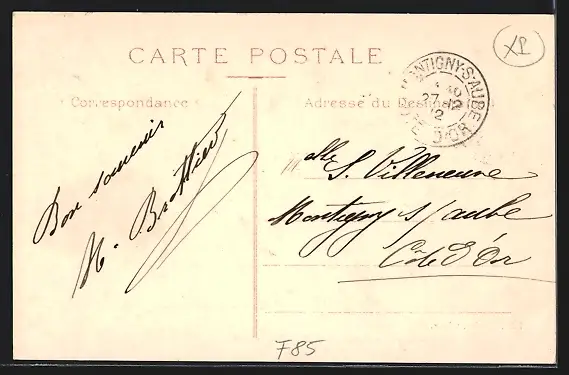 CARTE POSTALE
Correspondance
Adresse du Destinataire
MONTIGNY-S-AUBE
27 -12
12
D'OR
Bon souvenir
Mlle S. Villeneuve
Montigny s/aube
Côte d'Or
F85